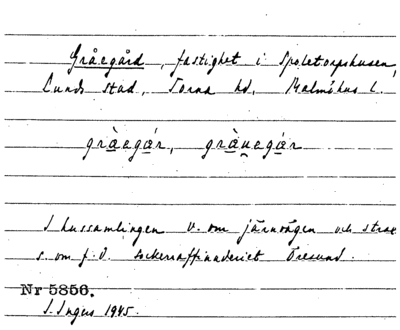 Gråegård, fastighet i Spoletorpshusen,
Lunds stad, Torna hd, Malmöhus l.
gràegár, gràu̯egár
I hussamlingen v. om järnvägen och strax
s. om f.d. sockerraffinaderiet Öresund.
Nr 5856.
I. Ingers 1945.